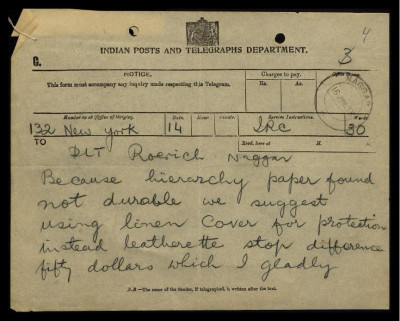 4
3
INDIAN POSTS AND TELEGRAPHS DEPARTMENT.
G.
NOTICE.
This form must accompany any inquiry made respecting this Telegram.
Charges to pay.
Rs. As.
NAGGAR
Number at Office of Origin. Date Hour Service Instructions. Words
132 New York 14 IRC 30
TO
Recd. here at H. M.
DLT Roerich Naggar
Because hierarchy paper found
not durable we suggest
using linen cover for protection
instead leatherette stop difference
fifty dollars which I gladly
N.B.—The name of the Sender, if telegraphed, is written after the text.